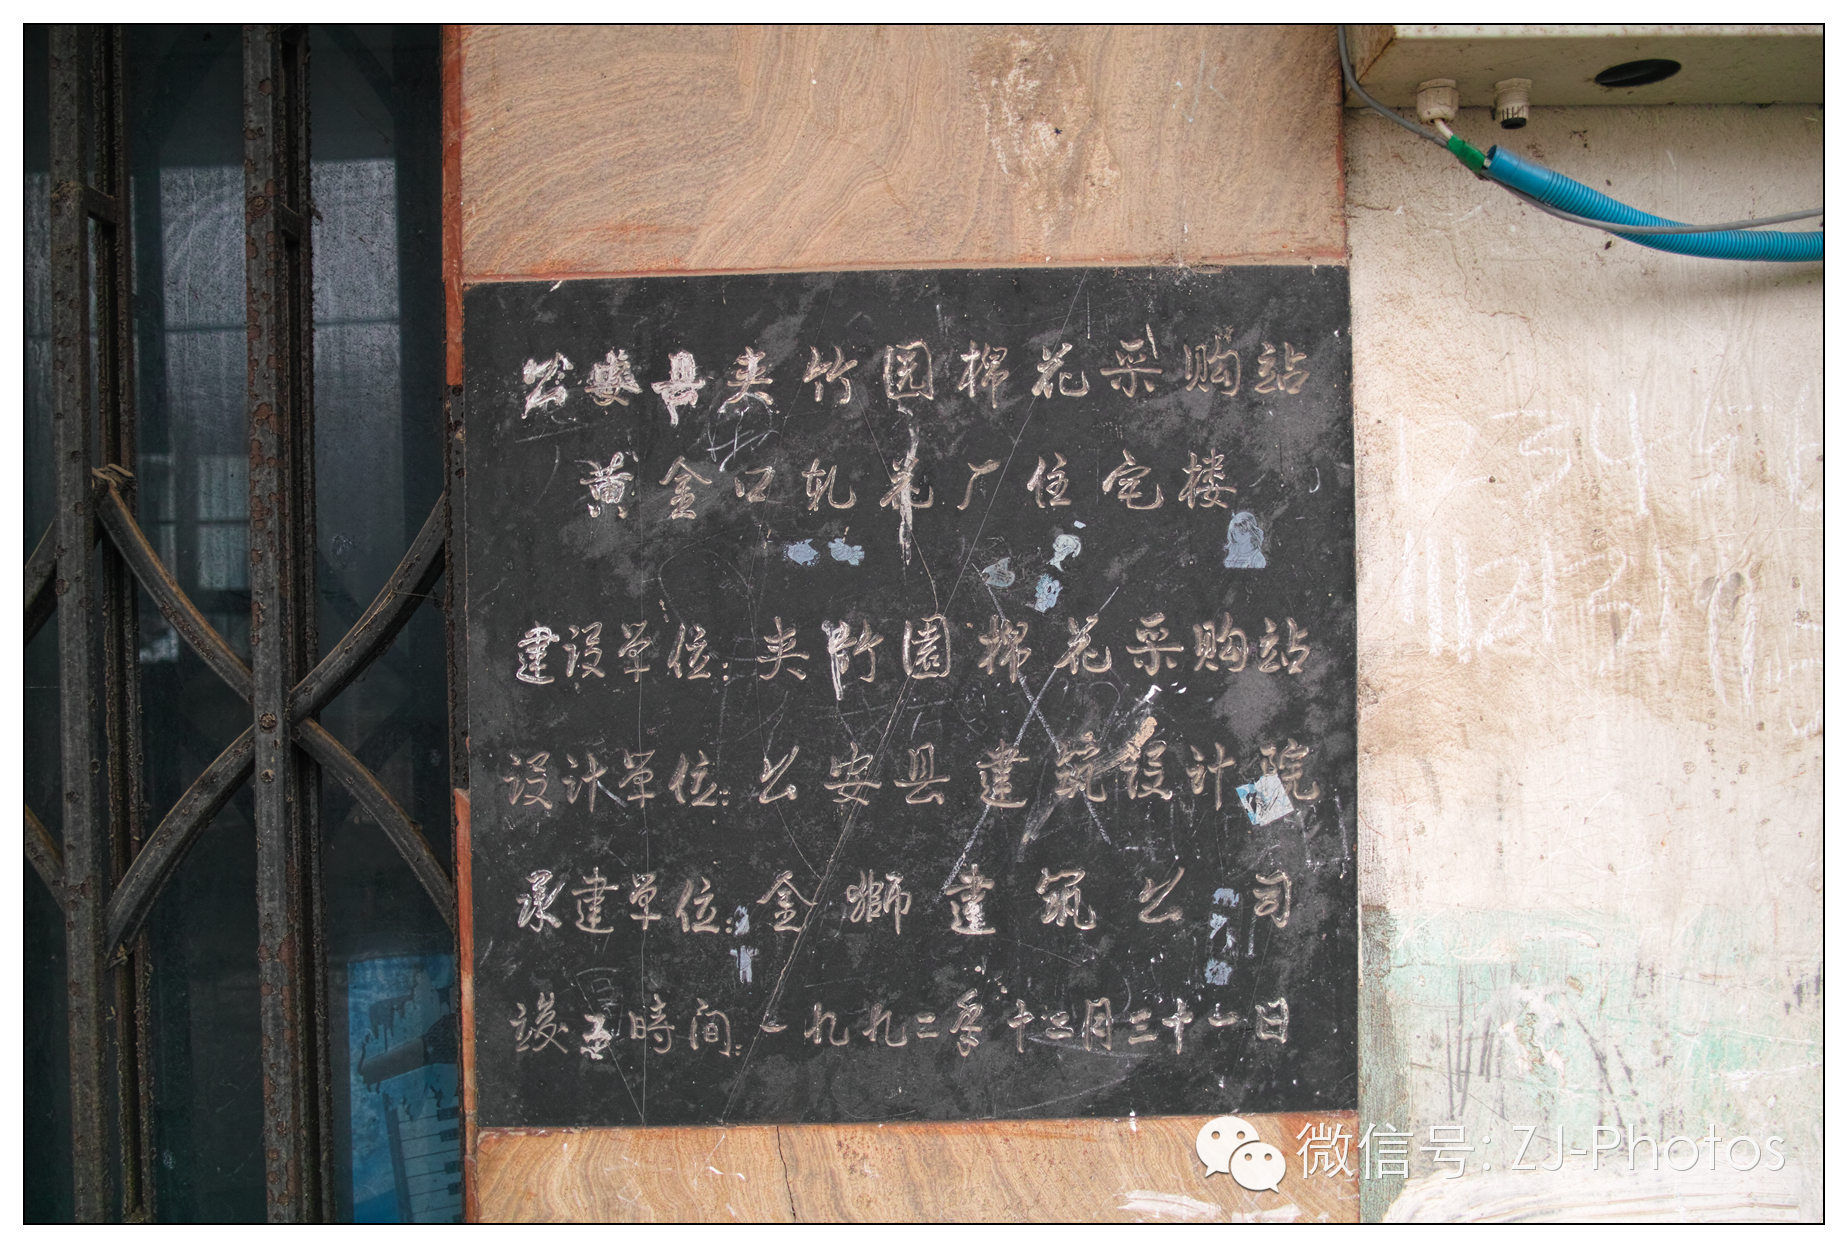 公安县夹竹园棉花采购站
黄金口轧花厂住宅楼
建设单位:夹竹園棉花采购站
设计单位:公安县建筑设计院
承建单位:金獅建筑公司
竣工時间:一九九二年十二月三十一日
微信号: ZJ-Photos